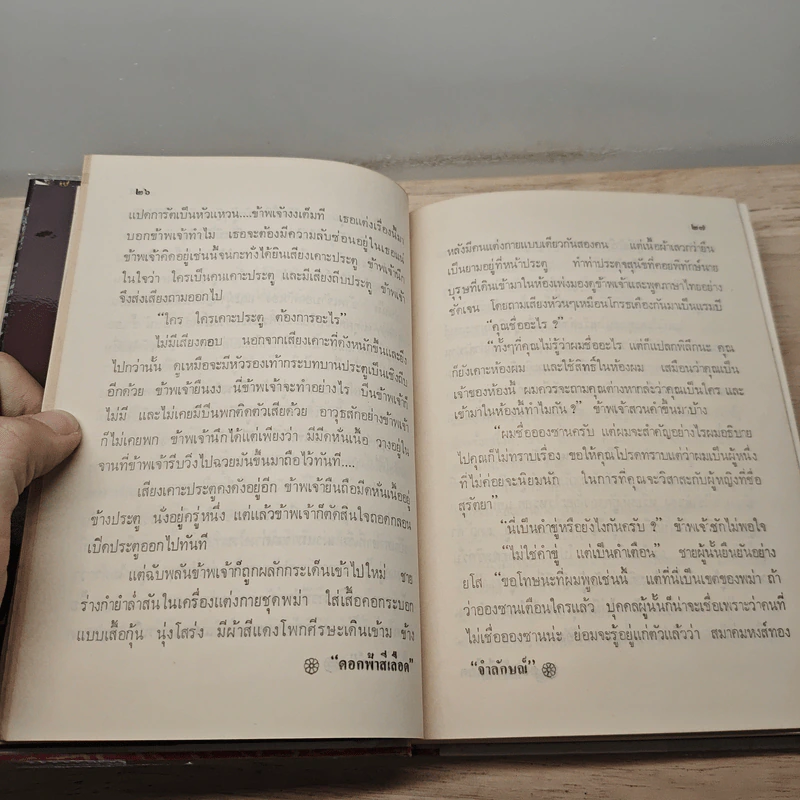 ๒๖
แปดการัตเป็นหัวแหวน....ข้าพเจ้างงเต็มที เธอแต่งเรื่องนี้มา
บอกข้าพเจ้าทำไม เธอจะต้องมีความลับซ่อนอยู่ในใจแน่
ข้าพเจ้าคิดอยู่เช่นนี้จนกะทั่งได้ยินเสียงเคาะประตู ข้าพเจ้านึก
ในใจว่า ใครเป็นคนเคาะประตู และมีเสียงถีบประตู ข้าพเจ้า
จึงส่งเสียงถามออกไป
“ใคร ใครเคาะประตู ต้องการอะไร”
ไม่มีเสียงตอบ นอกจากเสียงเคาะที่ดังหนักขึ้นและยิ่ง
ไปกว่านั้น ดูเหมือจะมีหัวรองเท้ากระบทบานประตูเป็นเชิงถีบ
อีกด้วย ข้าพเจ้ายืนงง นี่ข้าพเจ้าจะทำอย่างไร ปืนข้าพเจ้าก็
ไม่มี และไม่เคยมีปืนพกติดตัวเสียด้วย อาวุธสักอย่างข้าพเจ้า
ก็ไม่เคยพก ข้าพเจ้านึกได้แต่เพียงว่า มีมีดหั่นเนื้อ วางอยู่ใน
จานที่ข้าพเจ้ารีบวิ่งไปฉวยมันขึ้นมาถือไว้ทันที....
เสียงเคาะประตูคงดังอยู่อีก ข้าพเจ้ายืนถือมีดหั่นเนื้ออยู่
ข้างประตู นั่งอยู่ครู่หนึ่ง แต่แล้วข้าพเจ้าก็ตัดสินใจถอดกลอน
เปิดประตูออกไปทันที
แต่ฉับพลันข้าพเจ้าก็ถูกผลักกระเด็นเข้าไปใหม่ ชาย
ร่างกำยำล่ำสันในเครื่องแต่งกายชุดพม่า ใส่เสื้อคอกระบอก
แบบเสื้อกุ้น นุ่งโสร่ง มีผ้าสีแดงโพกศีรษะเดินเข้ามา ข้าง
“ดอกฟ้าสีเลือด”
๒๗
หลังมีคนแต่งกายแบบเดียวกันสองคน แต่เนื้อผ้าเลวกว่ายืน
เป็นยามอยู่ที่หน้าประตู ทำท่าประดุจสุนัขที่คอยพิทักษ์นาย
บุรุษที่เดินเข้ามาในห้องเพ่งมองดูข้าพเจ้าและพูดภาษาไทยอย่าง
ชัดเจน โดยถามเสียงห้วนๆเหมือนโกรธเคืองกันมาเป็นแรมปี
“คุณชื่ออะไร ?”
“ทั้งๆที่คุณไม่รู้ว่าผมชื่ออะไร แต่ก็แปลกพิลึกนะ คุณ
ก็ยังเคาะห้องผม และใช้สิทธิ์ในห้องผม เสมือนว่าคุณเป็น
เจ้าของห้องนี้ ผมควรจะถามคุณต่างหากล่ะว่าคุณเป็นใคร และ
เข้ามาในห้องนี้ทำไมกัน ?” ข้าพเจ้าสวนคำขึ้นมาบ้าง
“ผมชื่อออองซานครับ แต่ผมจะสำคัญอย่างไรผมอธิบาย
ไปคุณก็ไม่ทราบเรื่อง ขอให้คุณโปรดทราบแต่ว่าผมเป็นผู้หนึ่ง
ที่ไม่ค่อยจะนิยมนัก ในการที่คุณจะวิสาสะกับผู้หญิงที่ชื่อ
สุรัตยา”
“นี่เป็นคำขู่หรือยังไงกันครับ ?” ข้าพเจ้าชักไม่พอใจ
“ไม่ใช่คำขู่ แต่เป็นคำเตือน” ชายผู้นั้นยืนยันอย่าง
ยโส “ขอโทษนะที่ผมพูดเช่นนี้ แต่ที่นี่เป็นเขตของพม่า ถ้า
ว่าอองซานเตือนใครแล้ว บุคคลผู้นั้นก็น่าจะเชื่อเพราะว่าคนที่
ไม่เชื่ออองซานน่ะ ย่อมจะรู้อยู่แก่ตัวแล้วว่า สมาคมหงส์ทอง
“จำลักษณ์”